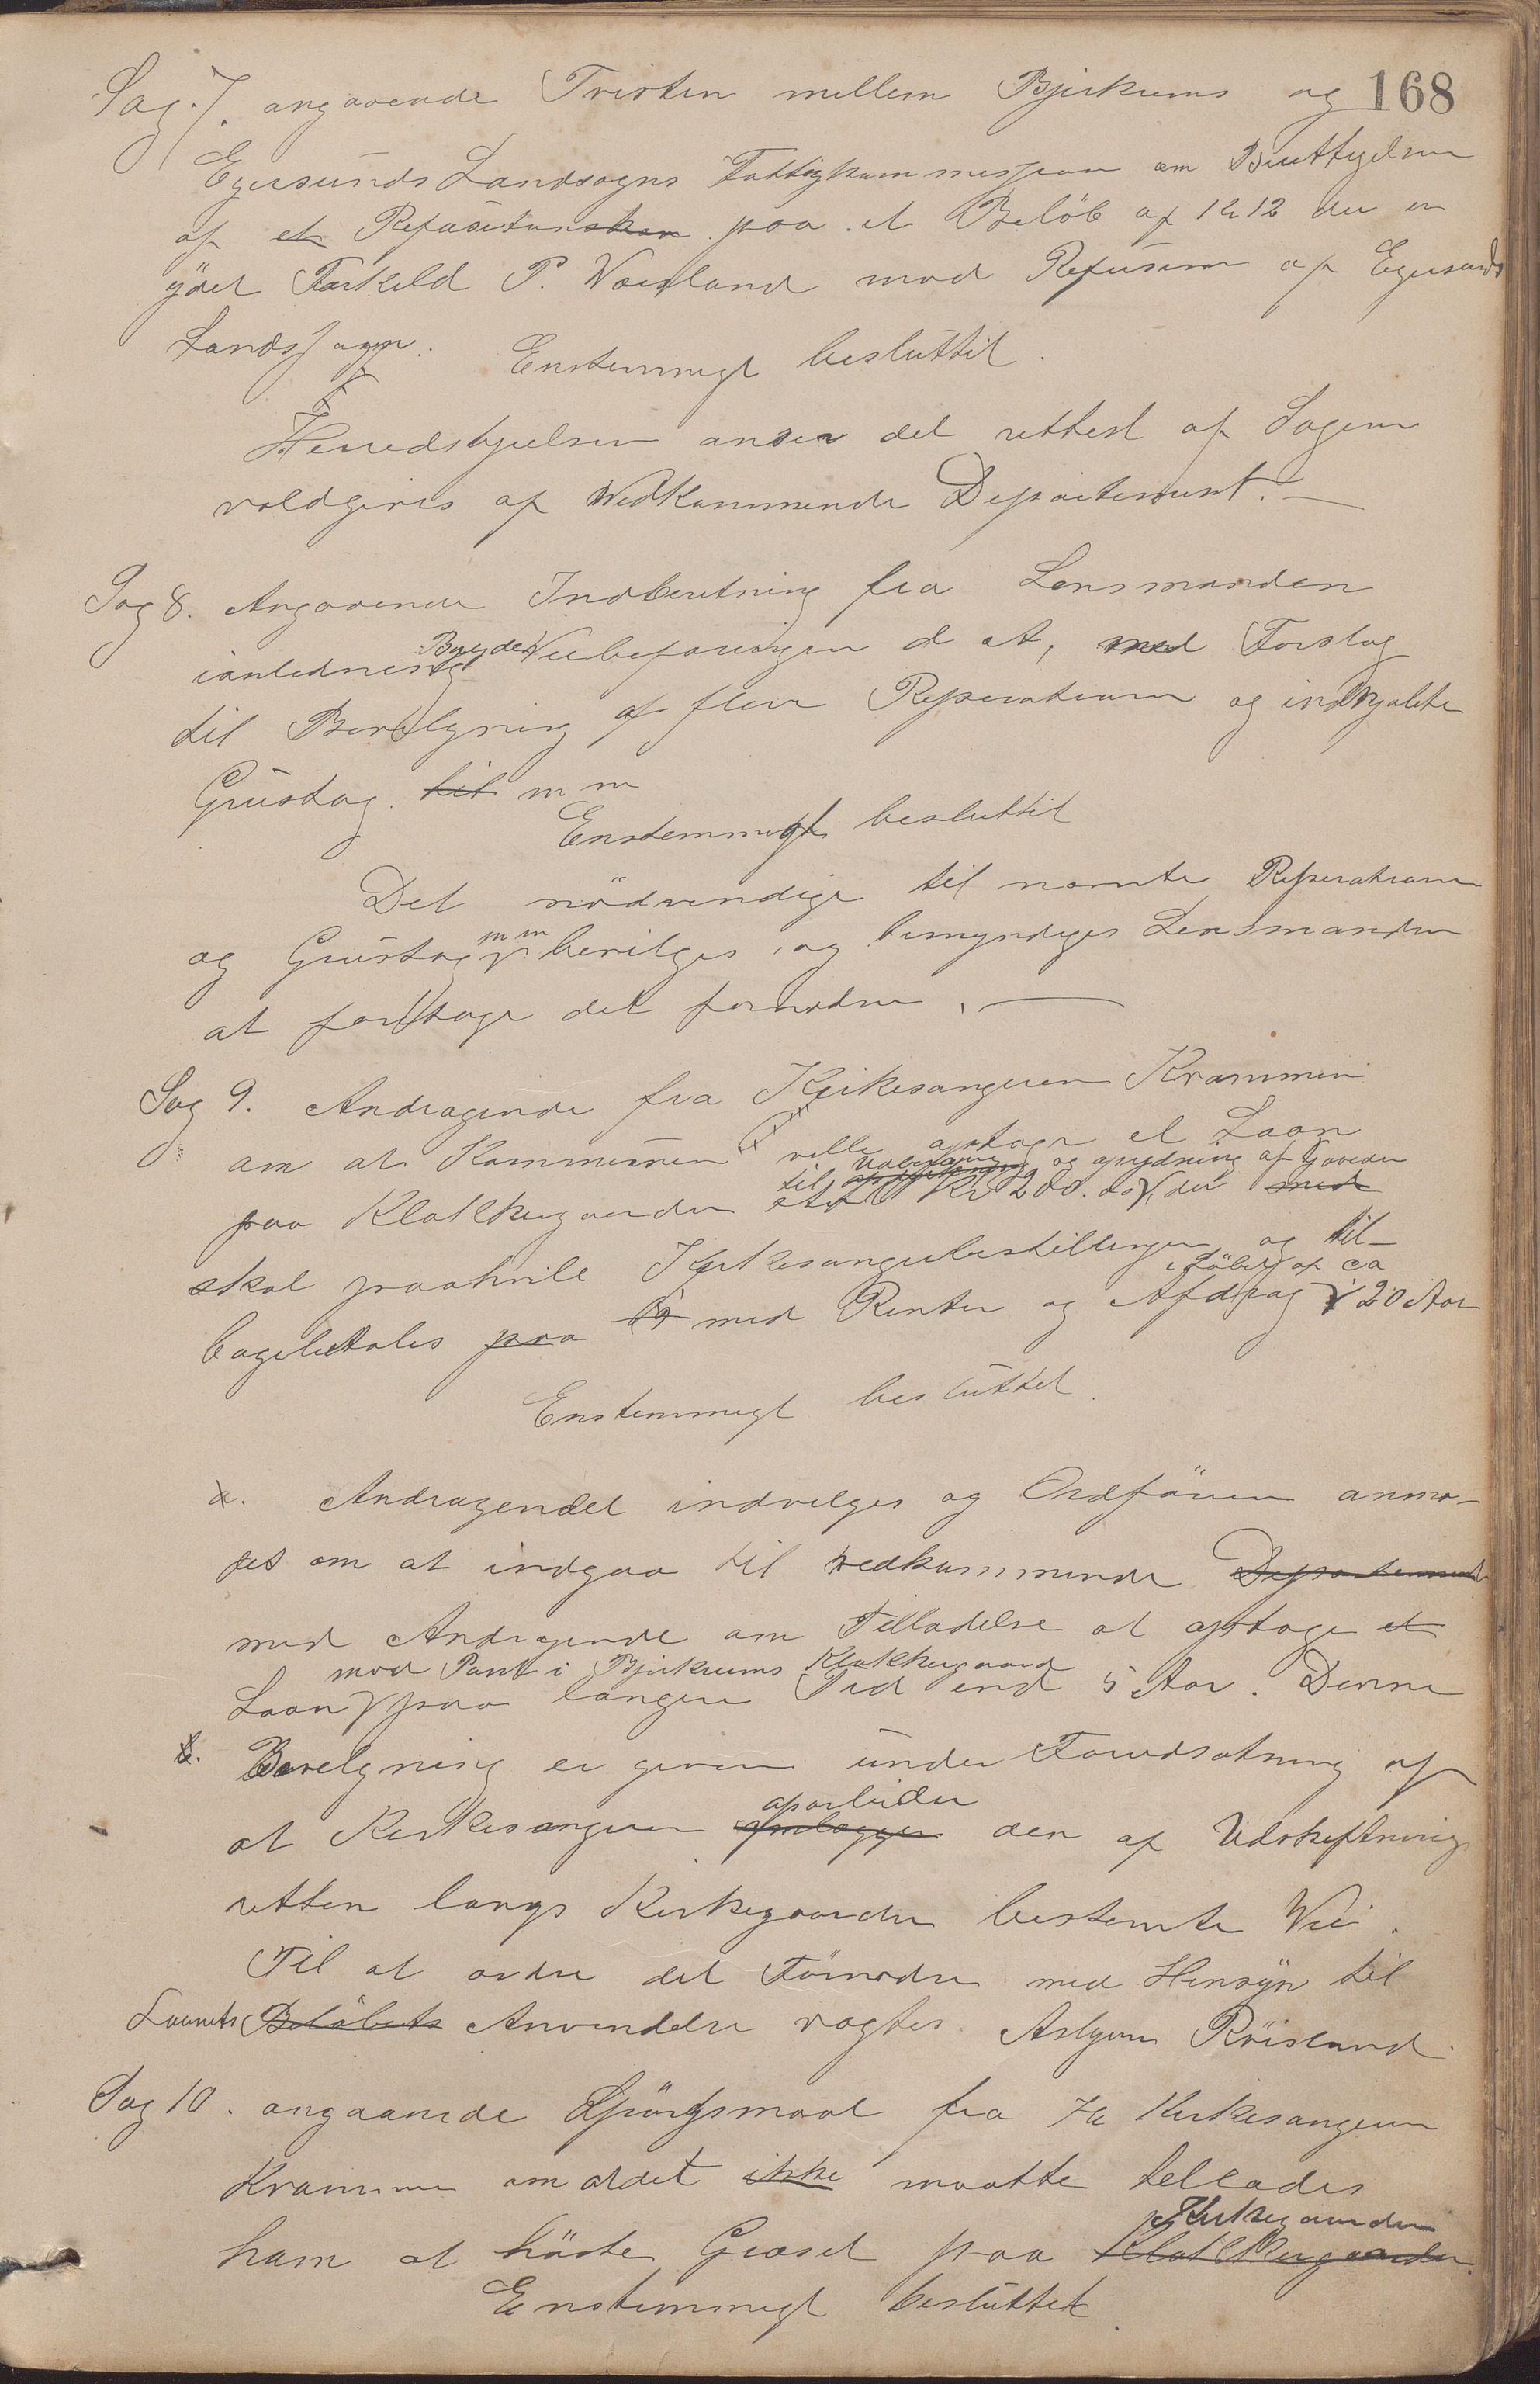 168
Sag 7. angaaende Tvisten mellem Bjerkrems og
Egersunds Landsogns Fattigkommission om Benttigelsen
af et Refusitions paa et Beløb af Kr 12 der er
ydet Torkild P. Vasland mod Refusion af Egersunds
Landssogn.
Enstemmigt besluttet.
Herredstyrelsen anser det rettest af Sagen
voldgives af Vedkommende Departement. —
Sag 8. Angaaende Indberetning fra Lensmanden
ianledning Bygde Veibefaringen d A, med Forslag
til Bevilgning af flere Reperationer og indkjøbte
Grustag. til m m
Enstemmigt besluttet
Det nödvendige til nævnte Reperationer
og Grustag m m bevilges, og bemyndiges Lensmanden
at foretage det fornødne. —
Sag 9. Andragende fra Kirkesangeren Krammer
om at Kommunen vilde optage et Laan
til og grydning af Gaarden
paa Klokkergaarden stort Kr 200. der med
skal paahvile Kirkesangerbestillingen og til-
bagebetales paa med Renter og Afdrag i Löbet af ca 20 Aar
Enstemmigt besluttet.
a. Andragendet indvilges og Ordføreren anmo-
des om at indgaa til vedkommende Departement
med Andragende om Tilladelse at optage et
mod Pant i Bjerkrems Klokkergaard
Laan paa længere Tid end 5 Aar. Denne
b. Bevilgning er given under Forudsætning af
oparbeider
at Kirkesangeren den af Udskiftnings
retten langs Kirkegaarden bestemte Vei.
Til at ordne det Fornødne med Hensyn til
Laanets Beløbets Anvendelse vagtes Asbjørn Röisland.
Sag 10. angaaende Spörgsmaal fra Hr Kirkesangeren
Krammer om det ikke maatte tillades
Kirkegaarden
ham at höste Græset paa Klokkergaarden.
Enstemmigt besluttet